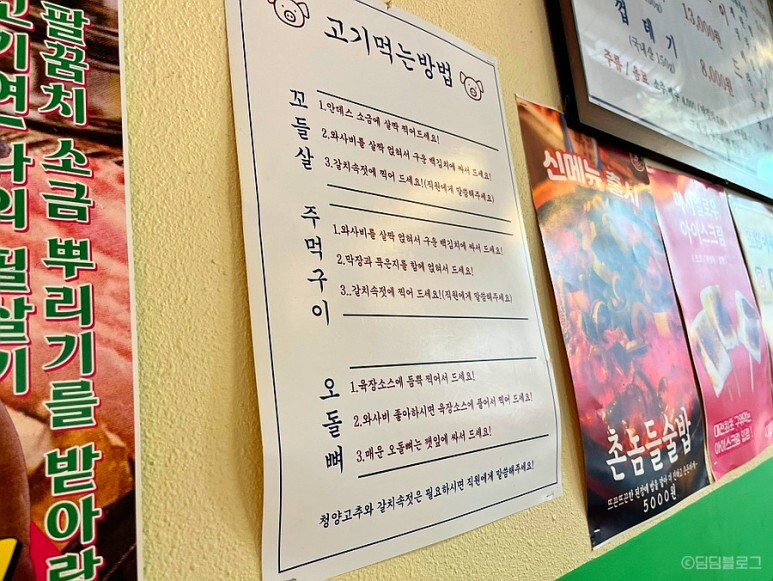 팔꿈치 소금 뿌리기를 받아라
고기먹는방법
꼬들살
1.안데스 소금에 살짝 찍어드세요!
2.와사비를 살짝 얹혀서 구운 백김치에 싸서 드세요!
3.갈치속젓에 찍어 드세요!(직원에게 말씀해주세요)
주먹구이
1.와사비를 살짝 얹혀서 구운 백김치에 싸서 드세요!
2.막장과 묵은지를 함께 얹혀서 드세요!
3..갈치속젓에 찍어 드세요!(직원에게 말씀해주세요)
오돌뼈
1.육장소스에 듬뿍 찍어서 드세요!
2.와사비 좋아하시면 육장소스에 풀어서 찍어 드세요!
3.매운 오돌뼈는 깻잎에 싸서 드세요!
청양고추와 갈치속젓은 필요하시면 직원에게 말씀해주세요!
13,000원
껍데기
(국내산 150g)
8,000원
주류 / 음료
신메뉴 출시
촌놈들술밥
5000원
마시멜로우
아이스크림
ⓒ딤딤블로그